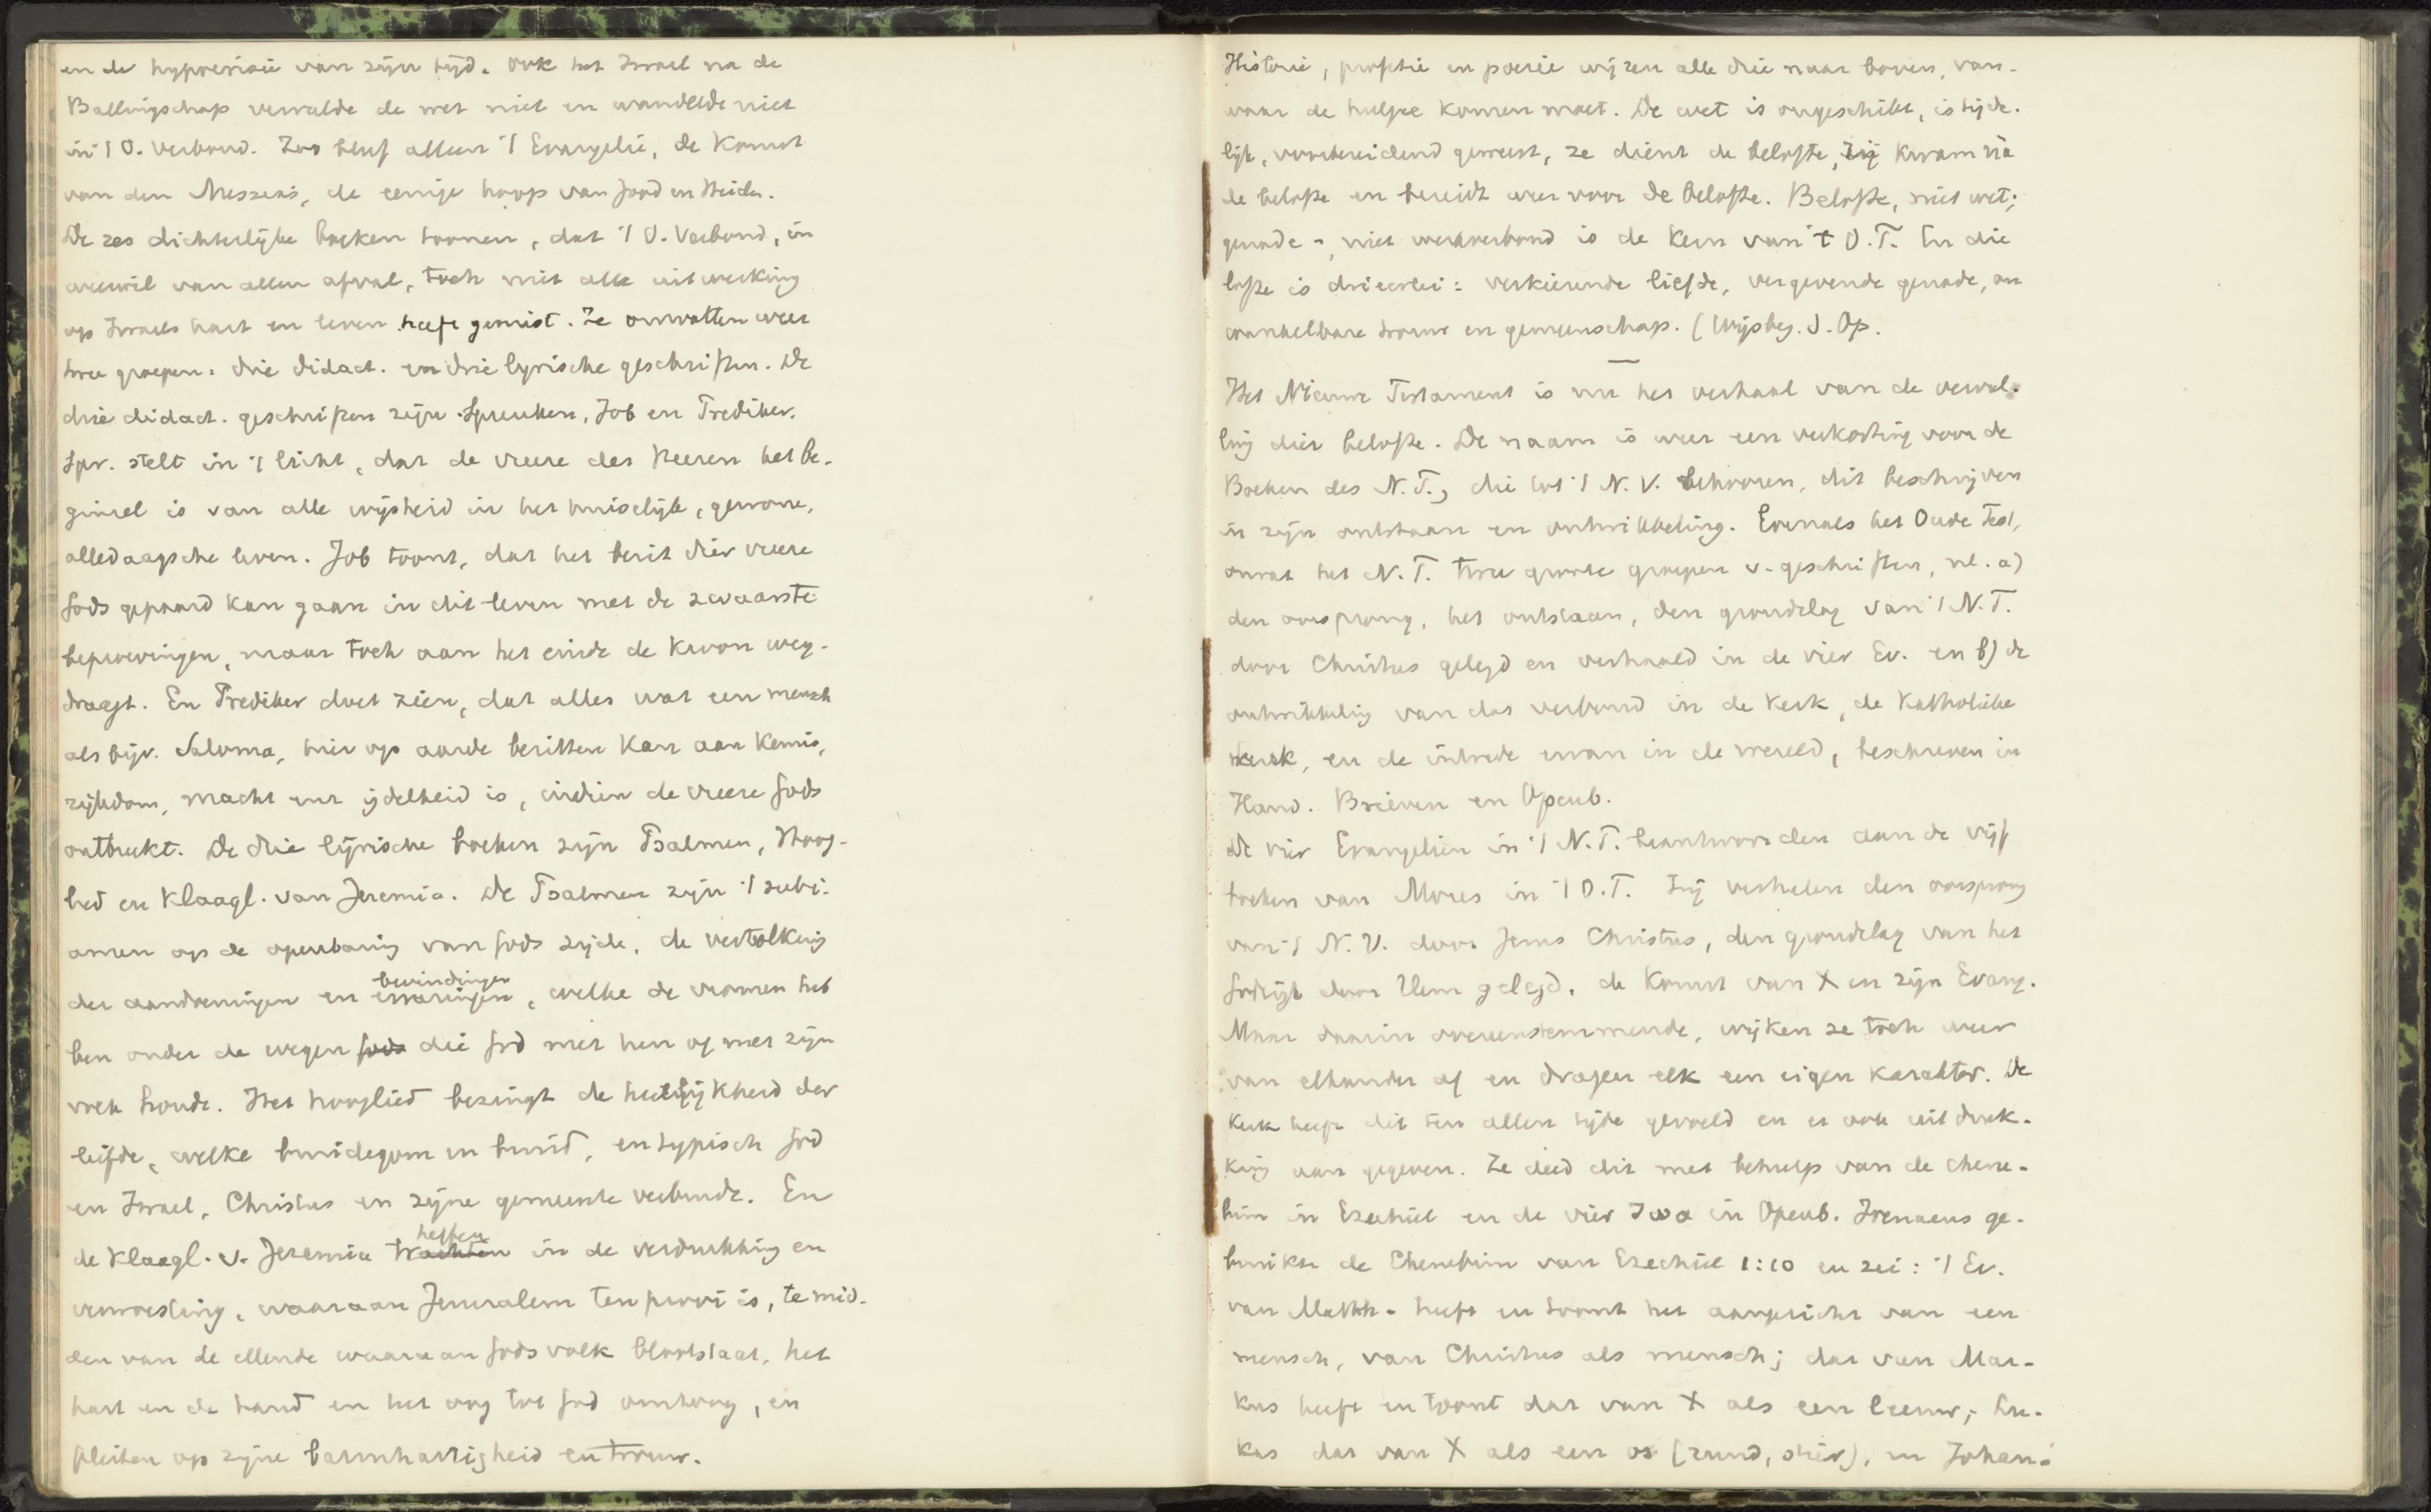 en de hypocrisie van zijn tijd. Ook het Israel na de
Ballingschap vervulde de wet niet en wandelde niet
in 't O. Verbond. Zoo bleef alleen 't Evangelie, de Komst
van den Messias, de eenige hoop van Jood en Heiden.
De zes dichterlijke boeken toonen, dat 't O. Verbond, in
weerwil van allen afval, toch niet alle uitwerking
op Israels hart en leven heeft gemist. Ze omvatten weer
twee groepen: drie didact. en drie lyrische geschriften. De
drie didact. geschriften zijn Spreuken, Job en Prediker.
Spr. stelt in 't licht, dat de vreere des Heeren het be-
ginsel is van alle wijsheid in het huiselijk, gewone,
alledaagsche leven. Job toont, dat het bezit dier vreere
Gods gepaard kan gaan in dit leven met de zwaarste
beproevingen, maar toch aan het einde de Kroon weg-
draagt. En Prediker doet zien, dat alles wat een mensch
als bijv. Saloma, hier op aarde bezitten kan aan kennis,
rijkdom, macht enz ijdelheid is, indien de vreere Gods
ontbreekt. De drie lyrische boeken zijn Psalmen, Hoog-
lied en Klaagl. van Jeremia. De Psalmen zijn 't subj.
amen op de openbaring van Gods zijde, de vertolking
der aandoeningen en ervaringen bevindingen, welke de vromen heb
ben onder de wegen Gods die God met hen of met zijn
volk houdt. Het hooglied bezingt de heerlijkheid der
liefde, welke bruidegom en bruid, en typisch God
en Israel, Christus en zijne gemeente verbindt. En
de Klaagl. v. Jeremia trachten heffen in de verdrukking en
verwoesting, waaraan Jeruzalem ten prooi is, te mid-
den van de ellende waaraan Gods volk blootstaat, het
hart en de hand en het oog tot God omhoog, en
pleiten op zijne barmhartigheid en trouw.
Historie, profetie en poezie wijzen alle drie naar boven, van-
waar de hulpe komen moet. De wet is ongeschikt, is tijde-
lijk, voorbereidend geweest, ze dient de belofte, zij kwam nà
de belofte en bereidt weer voor de belofte. Belofte, niet wet;
genade-, niet werkverbond is de Kern van 't O.T. En die
lofte is drieerlei: verkiezende liefde, vergevende genade, on
wankelbare trouw en gemeenschap. (Wijsbeg. d. Op.
—
Het Nieuwe Testament is nu het verhaal van de vervul-
ling dier belofte. De naam is weer een verkorting voor de
Boeken des N.T., die tot 't N.V. behooren, dit beschrijven
in zijn ontstaan en ontwikkeling. Evenals het Oude Test,
omvat het N.T. twee groote groepen v. geschriften, nl. a)
den oorsprong, het ontstaan, den grondslag van 't N.T.
door Christus gelegd en verhaald in de vier Ev. en b) de
ontwikkeling van dat verbond in de Kerk, de Katholieke
Kerk, en de intrede ervan in de wereld, beschreven in
Hand. Brieven en Openb.
De vier Evangeliën in 't N.T. beantwoorden aan de vijf
boeken van Mozes in 't O.T. Zij verhalen den oorsprong
van 't N.V. door Jezus Christus, den grondslag van het
Godsrijk door Hem gelegd, de Komst van X en zijn Evang.
Maar daarin overeenstemmende, wijken ze toch weer
van elkander af en dragen elk een eigen karakter. De
Kerk heeft dit ten allen tijde gevoeld en er ook uitdruk-
king aan gegeven. Ze deed dit met behulp van de Cheru-
bim in Ezechiel en de vier ζωα in Openb. Irenaeus ge-
bruikte de Cherubim van Ezechiel 1:10 en zei: 't Ev.
van Matth. heeft en toont het aangezicht van een
mensch, van Christus als mensch; dat van Mar-
kus heeft en toont dat van X als een leeuw; Lu-
kas dat van X als een os (rund, stier), en Johan-